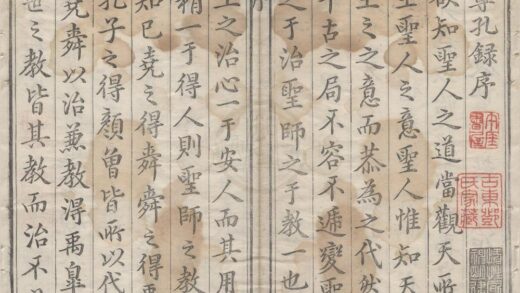 尊孔録序
欲知聖人之道當觀天所
生聖人之意聖人惟知天
生之之意而恭為之代然
千古之局不容不遞變聖
之于治聖師之于教一也
序
主之治心一于安人而其用
精一于得人則聖師之教
知已堯之得舜舜之得
孔子之得顏曾皆所以代
堯舜以治兼教得禹皐
世之教皆其教而治不